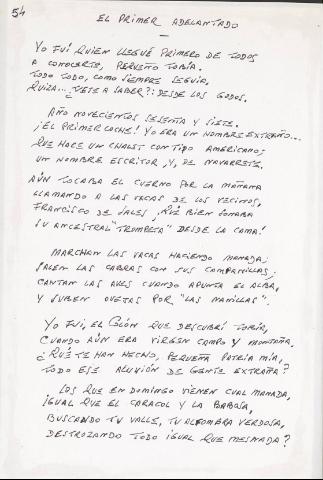 54
EL PRIMER ADELANTADO
YO FUÍ QUIEN LLEGUÉ PRIMERO DE TODOS
A CONOCERTE, PEQUEÑO TOBÍA.
TODO TODO, COMO SIEMPRE SEGUÍA,
QUIZÁ... ¿VETE A SABER?: DESDE LOS GODOS.
AÑO NOVECIENTOS SESENTA Y SIETE.
¡EL PRIMER COCHE! YO ERA UN HOMBRE EXTRAÑO...
QUE HACE UN CHALET CON TIPO AMERICANO;
UN HOMBRE ESCRITOR, Y, DE NAVARRETE.
AÚN TOCABA EL CUERNO POR LA MAÑANA
LLAMANDO A LAS VACAS DE LOS VECINOS,
FRANCISCO DE SALES, ¡QUÉ BIEN SONABA
SU ANCESTRAL "TROMPETA" DESDE LA CAMA!
MARCHAN LAS VACAS HACIENDO MANADA;
SALEN LAS CABRAS CON SUS CAMPANILLAS;
CANTAN LAS AVES CUANDO APUNTA EL ALBA,
Y SUBEN OVEJAS POR "LAS MANILLAS".
YO FUI, EL COLÓN QUE DESCUBRÍ TOBÍA,
CUANDO AÚN ERA VIRGEN CAMPO Y MONTAÑA,
¿QUÉ TE HAN HECHO, PEQUEÑA PATRIA MÍA,
TODO ESE ALUVIÓN DE GENTE EXTRAÑA?
LOS QUE EN DOMINGO VIENEN CUAL MANADA,
IGUAL QUE EL CARACOL Y LA BABOSA,
BUSCANDO TU VALLE, TU ALFOMBRA VERDOSA,
DESTROZANDO TODO IGUAL QUE MESNADA?